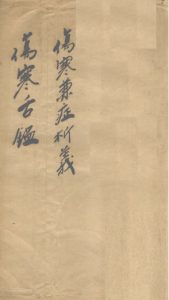 傷寒兼症析義
傷寒舌鑑